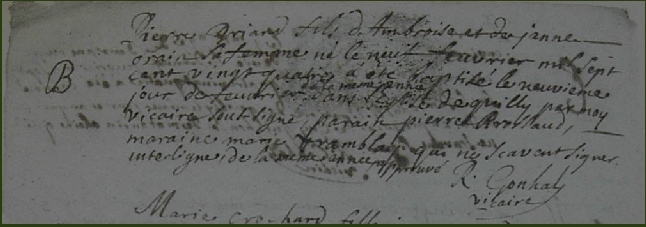 Pierre Briand fils d'Ambroise et de janne
orain sa femme né le neuf feuvrier mil sept
B
cent vingt quatre a été baptisé le neuvieme
de la meme année
jour de feuvrier dans l'eglise de quilly par moy
vicaire soussigné parain pierre
maraine marie tramblay qui ne scavent signer
interligne de la meme année approuvé
R. Gonhal
vicaire
Marie Crochard fille